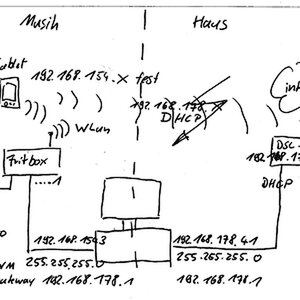 Musik
Haus
Tablet
192.168.154.x fest
192.168.178.x
DHCP
inte
WLan
DSL-
Fritbox
192.168.17
.....1
DHCP
192.168.154.3
192.168.178.41
255.255.255.0
255.255.255.0
192.168.178.1
192.168.178.1